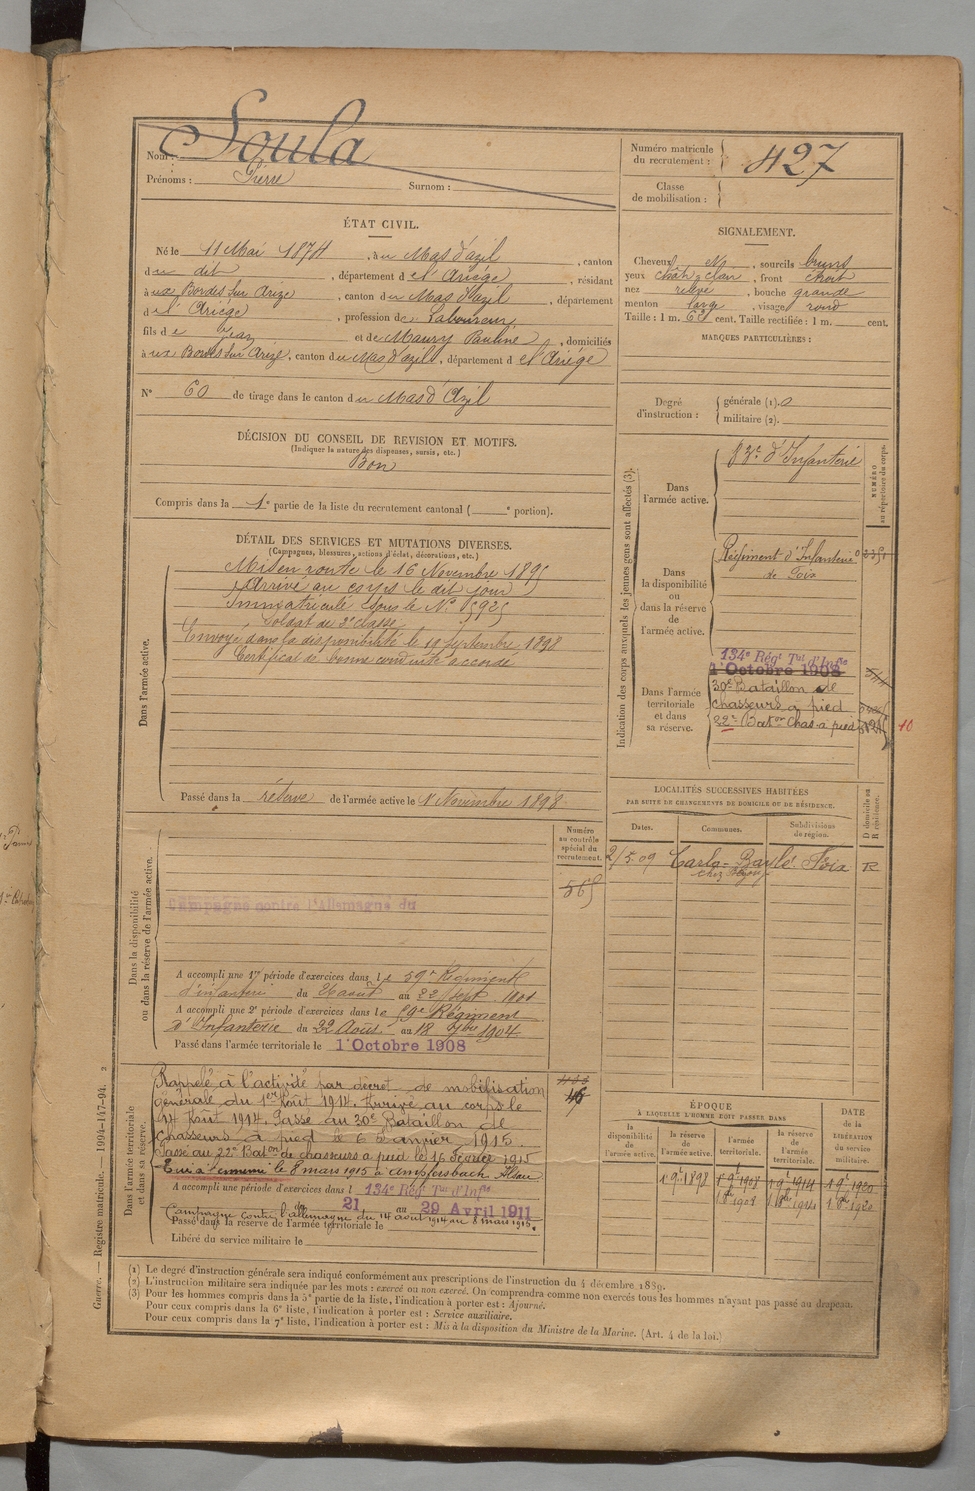 Nom : Soula
Prénoms : Pierre Surnom :
Numéro matricule du recrutement : 427
Classe de mobilisation :
ÉTAT CIVIL.
Né le 11 Mai 1874, au Mas d'azil, canton
du dit, département de l'Ariége, résidant
à ux Bordes sur Arize, canton du Mas d'azil, département
d el Ariége, profession de Laboureur
fils de Jean et de Maury Pauline, domiciliés
à ux Bordes sur Arize, canton du Mas d'azil, département d el Ariége
N° 60 de tirage dans le canton du Mas d'Azil
SIGNALEMENT.
Cheveux N, sourcils bruns
yeux chât clair, front étroit
nez relevé, bouche grande
menton large, visage rond
Taille : 1 m. cent. Taille rectifiée : 1 m. cent.
MARQUES PARTICULIÈRES :
Degré d'instruction : générale (1). 0
militaire (2).
DÉCISION DU CONSEIL DE REVISION ET MOTIFS.
(Indiquer la nature des dispenses, sursis, etc.)
Bon
Compris dans la 1e partie de la liste du recrutement cantonal ( e portion).
DÉTAIL DES SERVICES ET MUTATIONS DIVERSES.
(Campagnes, blessures, actions d'éclat, décorations, etc.)
Dans l'armée active.
Mis en route le 16 Novembre 1895
Arrivé au corps le dit jour
Immatriculé sous le N° 5925
Soldat de 2e classe
Envoyé dans la disponibilité le 19 Septembre 1898
Certificat de bonne conduite accordé
Passé dans la réserve de l'armée active le 1 Novembre 1898
Indication des corps auxquels les jeunes gens sont affectés (3).
NUMÉRO au répertoire du corps.
Dans l'armée active.
83e d'Infanterie
Dans la disponibilité ou dans la réserve de l'armée active.
Régiment d'Infanterie
de Foix
Dans l'armée territoriale et dans sa réserve.
134e Régt Tal d'Infie
1 Octobre 1908
30e Bataillon de
chasseurs à pied
22e Baton Chas. à pied
10
LOCALITÉS SUCCESSIVES HABITÉES
PAR SUITE DE CHANGEMENTS DE DOMICILE OU DE RÉSIDENCE.
Dates. Communes. Subdivisions de région. D domicile ou R résidence.
2/5.09 Carla-Bayle Foix R
Dans la disponibilité ou dans la réserve de l'armée active.
Numéro au contrôle spécial du recrutement.
565
Campagne contre l'Allemagne du
A accompli une 1re période d'exercices dans le 59e Régiment
d'infanterie du 26 août au 22 Sept. 1901
A accompli une 2e période d'exercices dans le 59e Régiment
d'Infanterie du 22 Août au 18 7bre 1904
Passé dans l'armée territoriale le 1 Octobre 1908
Dans l'armée territoriale et dans sa réserve.
Rappelé à l'activité par décret de mobilisation
générale du 1er Août 1914. Arrivé au corps le
14 Août 1914. Passé au 30e Bataillon de
chasseurs à pied le 6 Janvier 1915.
Passé au 22e Baton de chasseurs à pied le 16 Février 1915
Tué à l'ennemi le 8 mars 1915 à Ampfersbach Alsace
A accompli une période d'exercices dans l 134e Régt Tal d'Infie
du 21 au 29 Avril 1911
Campagne contre l'allemagne du 14 août 1914 au 8 mars 1915.
Passé dans la réserve de l'armée territoriale le
Libéré du service militaire le
ÉPOQUE
À LAQUELLE L'HOMME DOIT PASSER DANS
la disponibilité de l'armée active.
la réserve de l'armée active.
l'armée territoriale.
la réserve de l'armée territoriale.
DATE de la LIBÉRATION du service militaire.
1 9bre 1898 1 9bre 1908 1 9bre 1914 1 9bre 1920
1 8bre 1908 1 8bre 1914 1 8bre 1920
(1) Le degré d'instruction générale sera indiqué conformément aux prescriptions de l'instruction du 4 décembre 1889.
(2) L'instruction militaire sera indiquée par les mots : exercé ou non exercé. On comprendra comme non exercés tous les hommes n'ayant pas passé au drapeau.
(3) Pour les hommes compris dans la 5e partie de la liste, l'indication à porter est : Ajourné.
Pour ceux compris dans la 6e liste, l'indication à porter est : Service auxiliaire.
Pour ceux compris dans la 7e liste, l'indication à porter est : Mis à la disposition du Ministre de la Marine. (Art. 4 de la loi.)
Guerre. — Registre matricule. — 1994-147-94. 2